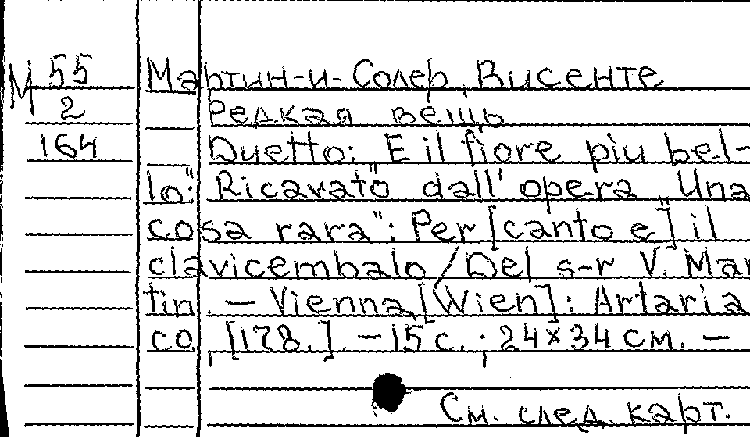 М 55 Мартин-и-Солер, Висенте
2 Редкая вещь
164 Duetto: "E il fiore piu bel-
lo": Ricavato dall'opera "Una
cosa rara": Per [canto e] il
clavicembalo / Del s-r V. Mar
tin. — Vienna [Wien]: Artaria
co, [178.]. — 15 с.; 24×34 см. —
См. след. карт.